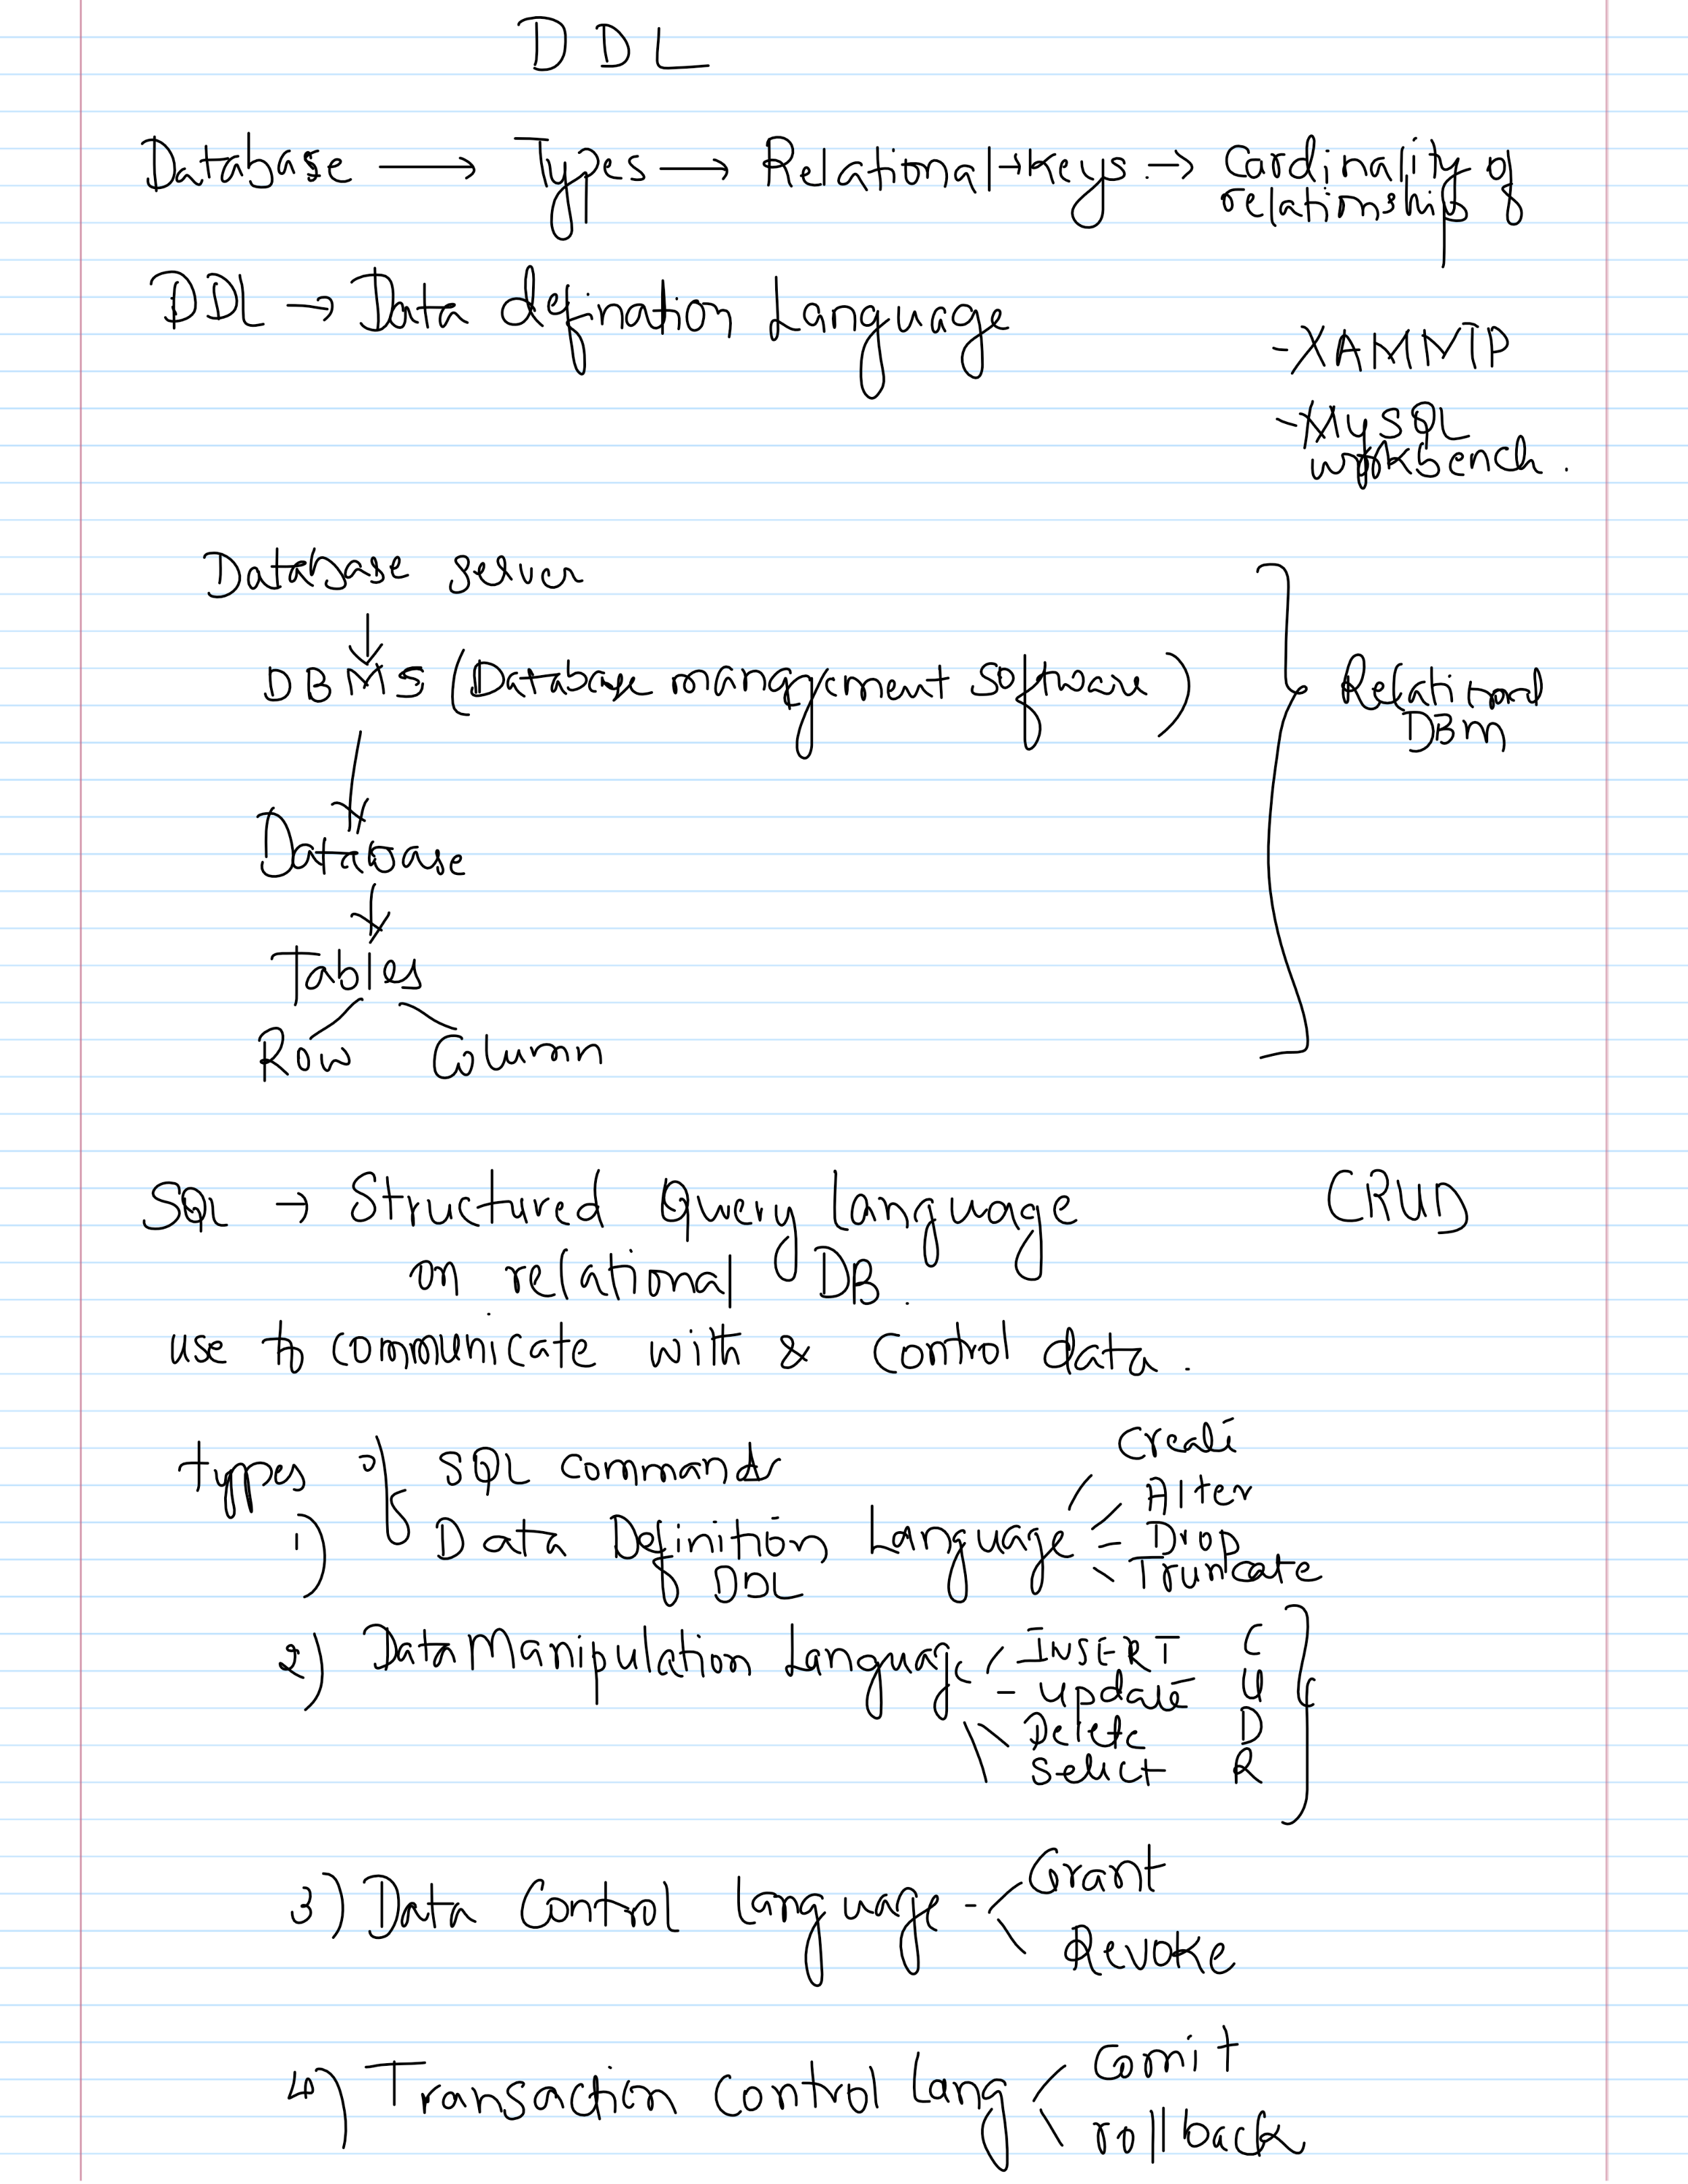 DDL
Database → Types → Relational → Keys → Cardinality of
relationship
DDL → Data defination Language
- XAMMTP
- MySQL
workbench.
Database server
↓
DBMS (Database management software)
Relational
DBM
↓
Database
↓
Tables
Row Column
SQL → Structured Query Language CRUD
on relational DB.
use to communicate with & control data.
types of SQL commands
Create
Alter
1) Data Definition Language - Drop
DDL - Truncate
2) Data Manipulation Language - INSERT C
- update U
Delete D
Select R
Grant
3) Data Control Language -
Revoke
Comit
4) Transaction Control Lang
rollback